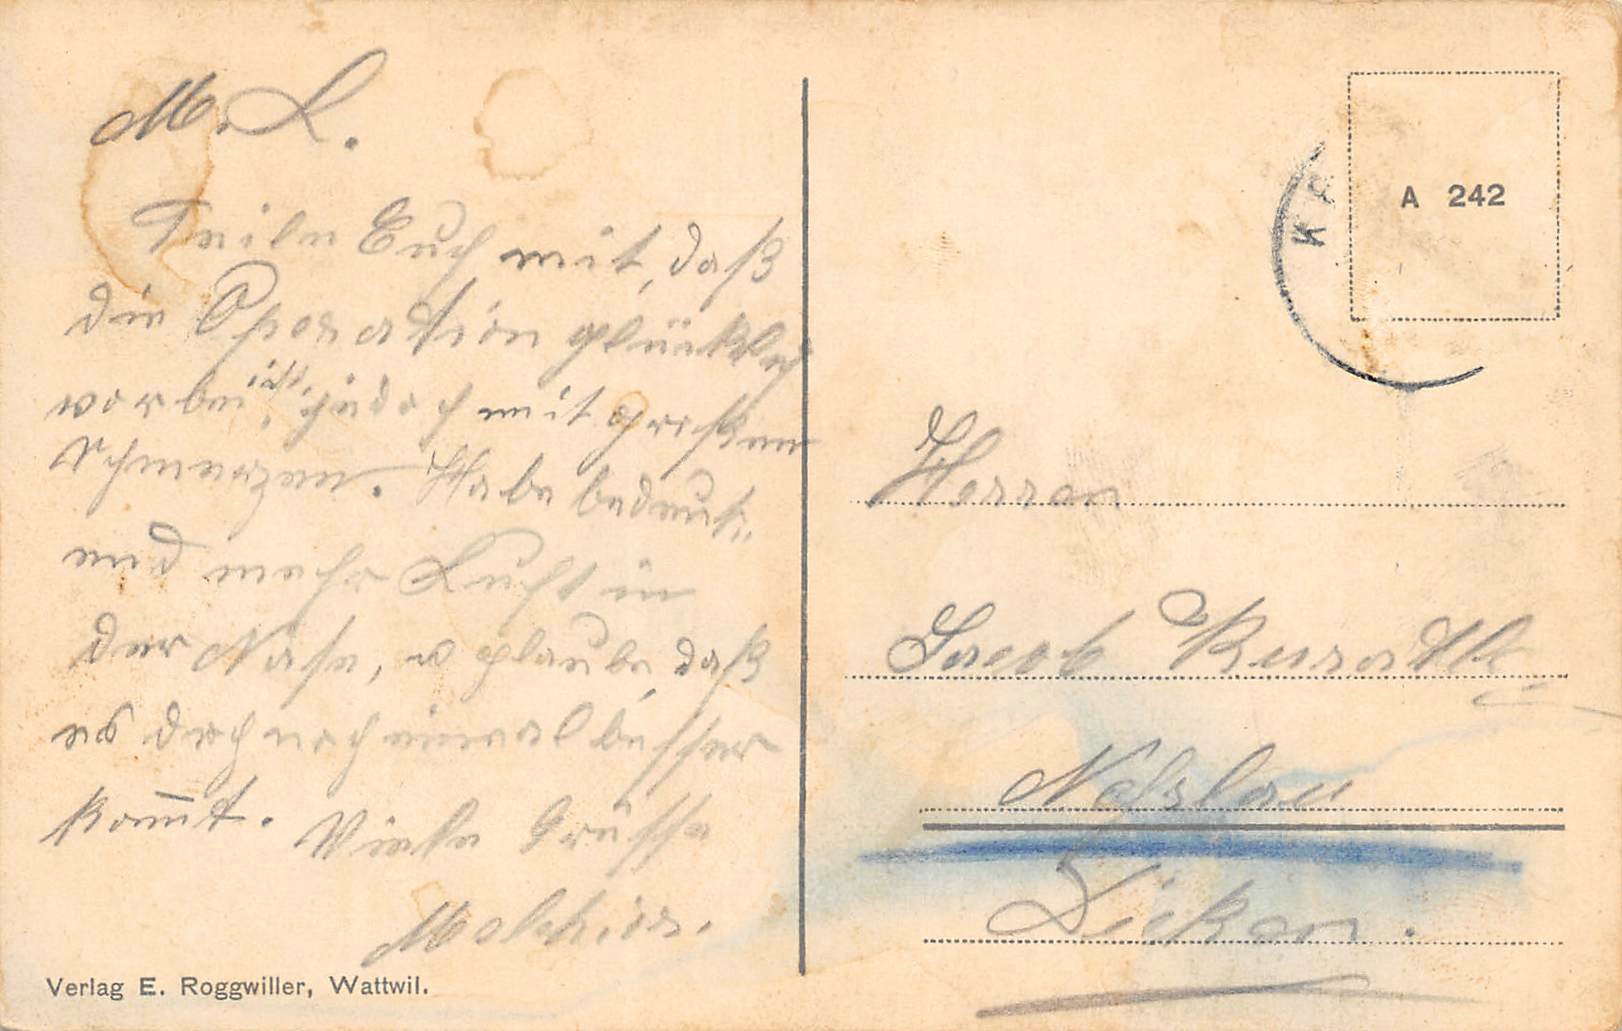 M. L.
Teile Euch mit, daß
die Operation glücklich
vorbei ist, jedoch mit großen
Schmerzen. Habe bedeut-
end mehr Luft in
der Nase, u glaube, daß
es doch noch einmal besser
kommt. Viele Grüsse
Melchior.
Verlag E. Roggwiller, Wattwil.
A 242
KA
Herren
Jacob
Neßlau
Dicken.